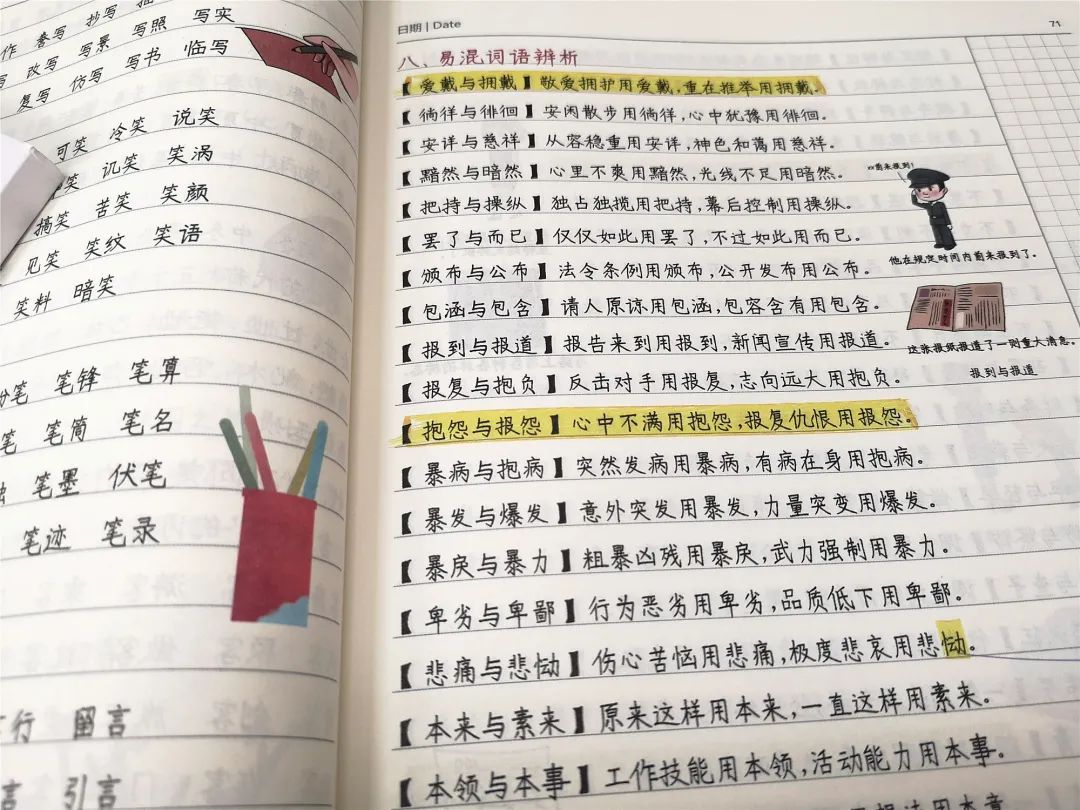 作 卷写 抄写
写景 写照 写实
改写 仿写 写书 临写
复写
可笑 冷笑 说笑
讥笑 笑涡
搞笑 苦笑 笑颜
见笑 笑纹 笑语
笑料 暗笑
笔锋 笔算
笔 笔简 笔名
笔墨 伏笔
笔迹 笔录
行 留言
言 引言
日期 | Date
71
八、易混词语辨析
【爱戴与拥戴】敬爱拥护用爱戴,重在推举用拥戴。
【徜徉与徘徊】安闲散步用徜徉,心中犹豫用徘徊。
【安详与慈祥】从容稳重用安详,神色和蔼用慈祥。
【黯然与暗然】心里不爽用黯然,光线不足用暗然。
【把持与操纵】独占独揽用把持,幕后控制用操纵。
【罢了与而已】仅仅如此用罢了,不过如此用而已。
【颁布与公布】法令条例用颁布,公开发布用公布。
【包涵与包含】请人原谅用包涵,包容含有用包含。
【报到与报道】报告来到用报到,新闻宣传用报道。
【报复与抱负】反击对手用报复,志向远大用抱负。
【抱怨与报怨】心中不满用抱怨,报复仇恨用报怨。
【暴病与抱病】突然发病用暴病,有病在身用抱病。
【暴发与爆发】意外突发用暴发,力量突变用爆发。
【暴戾与暴力】粗暴凶残用暴戾,武力强制用暴力。
【卑劣与卑鄙】行为恶劣用卑劣,品质低下用卑鄙。
【悲痛与悲恸】伤心苦恼用悲痛,极度悲哀用悲恸。
【本来与素来】原来这样用本来,一直这样用素来。
【本领与本事】工作技能用本领,活动能力用本事。
xx前来报到!
他在规定时间内前来报到了。
这张报纸报道了一则重大消息。
报到与报道